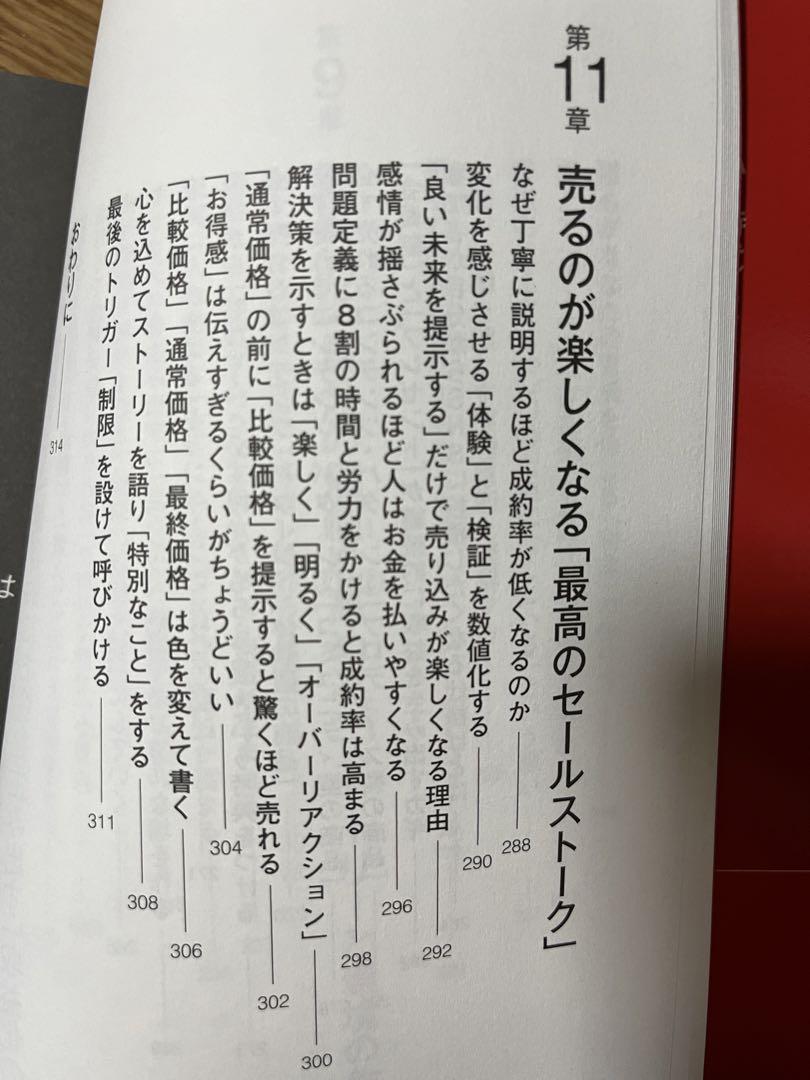 第11章
売るのが楽しくなる「最高のセールストーク」
なぜ丁寧に説明するほど成約率が低くなるのか 288
変化を感じさせる「体験」と「検証」を数値化する 290
「良い未来を提示する」だけで売り込みが楽しくなる理由 292
感情が揺さぶられるほど人はお金を払いやすくなる 296
問題定義に8割の時間と労力をかけると成約率は高まる 298
解決策を示すときは「楽しく」「明るく」「オーバーリアクション」 300
「通常価格」の前に「比較価格」を提示すると驚くほど売れる 302
「お得感」は伝えすぎるくらいがちょうどいい 304
「比較価格」「通常価格」「最終価格」は色を変えて書く 306
心を込めてストーリーを語り「特別なこと」をする 308
最後のトリガー「制限」を設けて呼びかける 311
おわりに 314
は